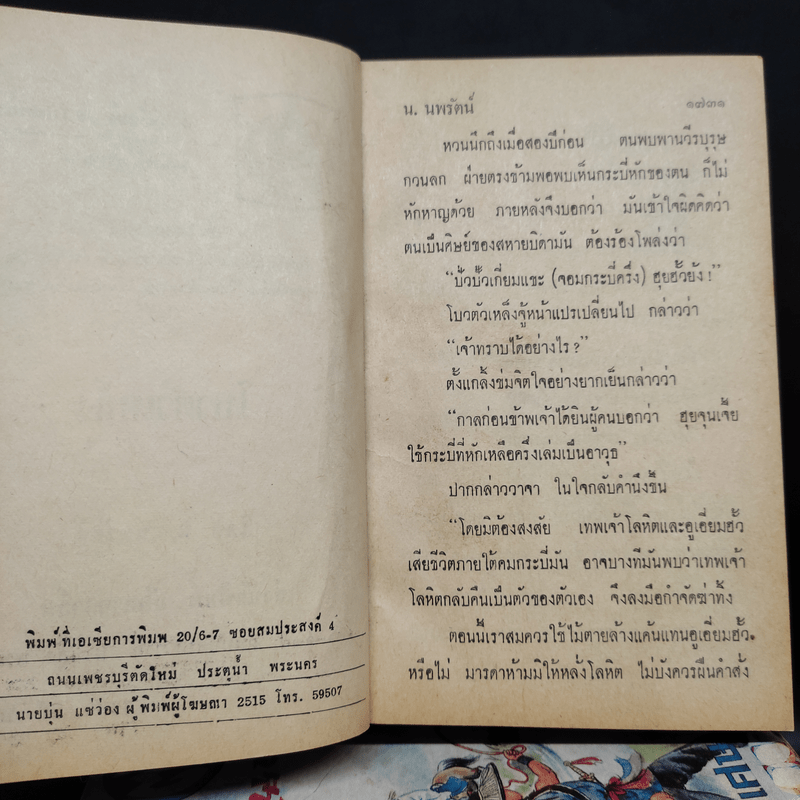 พิมพ์ที่เอเซียการพิมพ 20/6-7 ซอยสมประสงค์ 4
ถนนเพชรบุรีตัดใหม่ ประตูน้ำ พระนคร
นายบุ่น แซ่ว่อง ผู้พิมพ์ผู้โฆษณา 2515 โทร. 59507
น. นพรัตน์ ๑๗๓๑
หวนนึกถึงเมื่อสองปีก่อน ตนพบพานวีรบุรุษ
กวนลก ฝ่ายตรงข้ามพอพบเห็นกระบี่หักของตน ก็ไม่
หักหาญด้วย ภายหลังจึงบอกว่า มันเข้าใจผิดคิดว่า
ตนเป็นศิษย์ของสหายบิดามัน ต้องร้องโพล่งว่า
“ปั้วปั้วเกี่ยมแชะ (จอมกระบี่ครึ่ง) ฮุยฮั้วยัง !”
โบวตัวเหล็งจู้หน้าแปรเปลี่ยนไป กล่าวว่า
“เจ้าทราบได้อย่างไร ?”
ตั้งแกล้งข่มจิตใจอย่างยากเย็นกล่าวว่า
“กาลก่อนข้าพเจ้าได้ยินผู้คนบอกว่า ฮุยจุนเจี้ย
ใช้กระบี่ที่หักเหลือครึ่งเล่มเป็นอาวุธ”
ปากกล่าววาจา ในใจกลับคำนึงขึ้น
“โดยมิต้องสงสัย เทพเจ้าโลหิตและอูเอี่ยมฮั้ว
เสียชีวิตภายใต้คมกระบี่มัน อาจบางทีมันพบว่าเทพเจ้า
โลหิตกลับคืนเป็นตัวของตัวเอง จึงลงมือกำจัดฆ่าทิ้ง
ตอนนี้เราสมควรใช้ไม้ตายล้างแค้นแทนอูเอี่ยมฮั้ว
หรือไม่ มารดาห้ามมิให้หลั่งโลหิต ไม่บังควรฝืนคำสั่ง